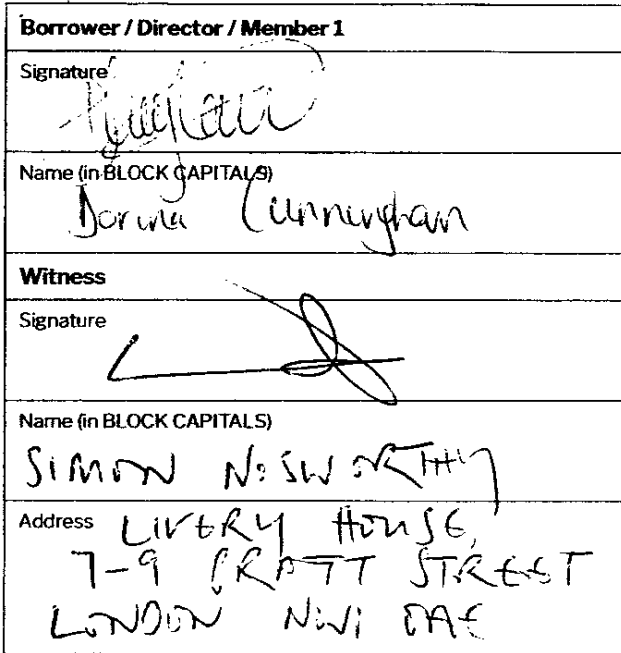 Borrower / Director / Member 1
Signature
Name (in BLOCK CAPITALS)
Dorina Cunningham
Witness
Signature
Name (in BLOCK CAPITALS)
SIMON NOSWORTHY
Address LIVERY HOUSE,
7-9 PRATT STREET
LONDON NW1 0AE